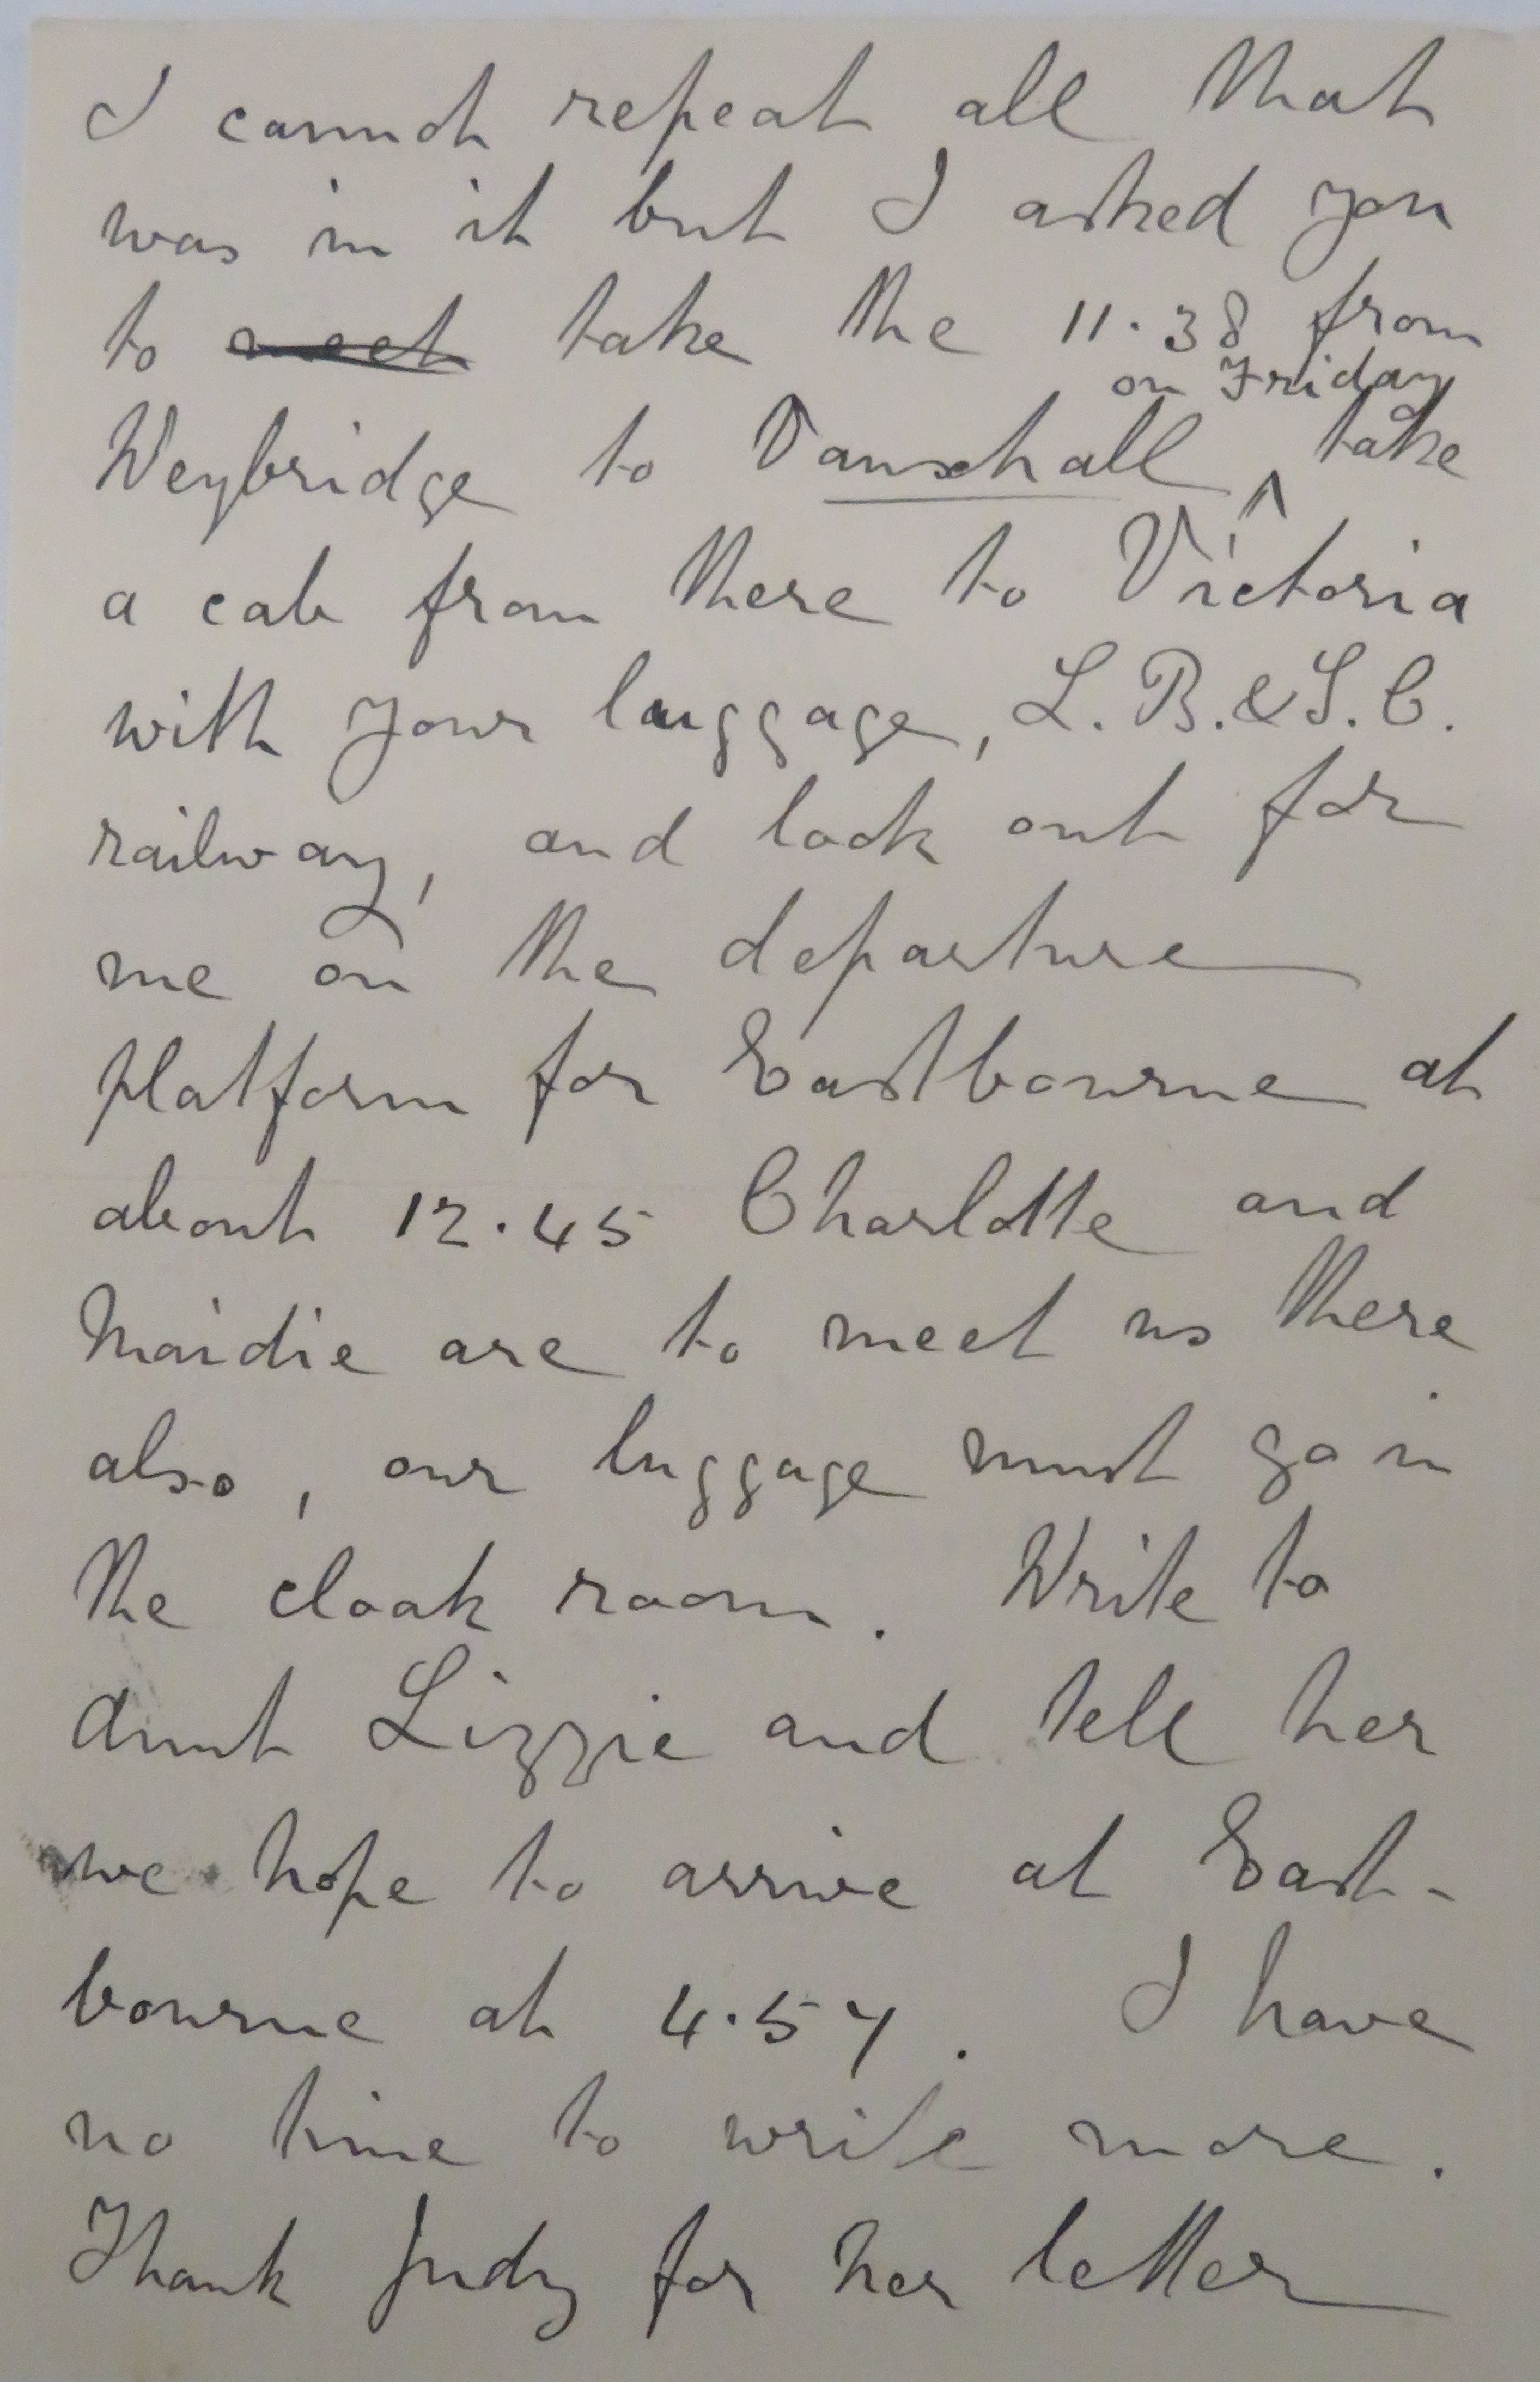 I cannot repeat all that
was in it but I asked you
to ~~meet~~ take the 11.38 from
on Friday
Weybridge to Vauxhall ^ take
a cab from there to Victoria
with your luggage, L. B. & S. C.
railway, and look out for
me on the departure
platform for Eastbourne at
about 12.45 Charlotte and
Maidie are to meet us there
also, our luggage must go in
the cloak room. Write to
Aunt Lizzie and tell her
we hope to arrive at East-
bourne at 4.57. I have
no time to write more.
Thank Judy for her letter